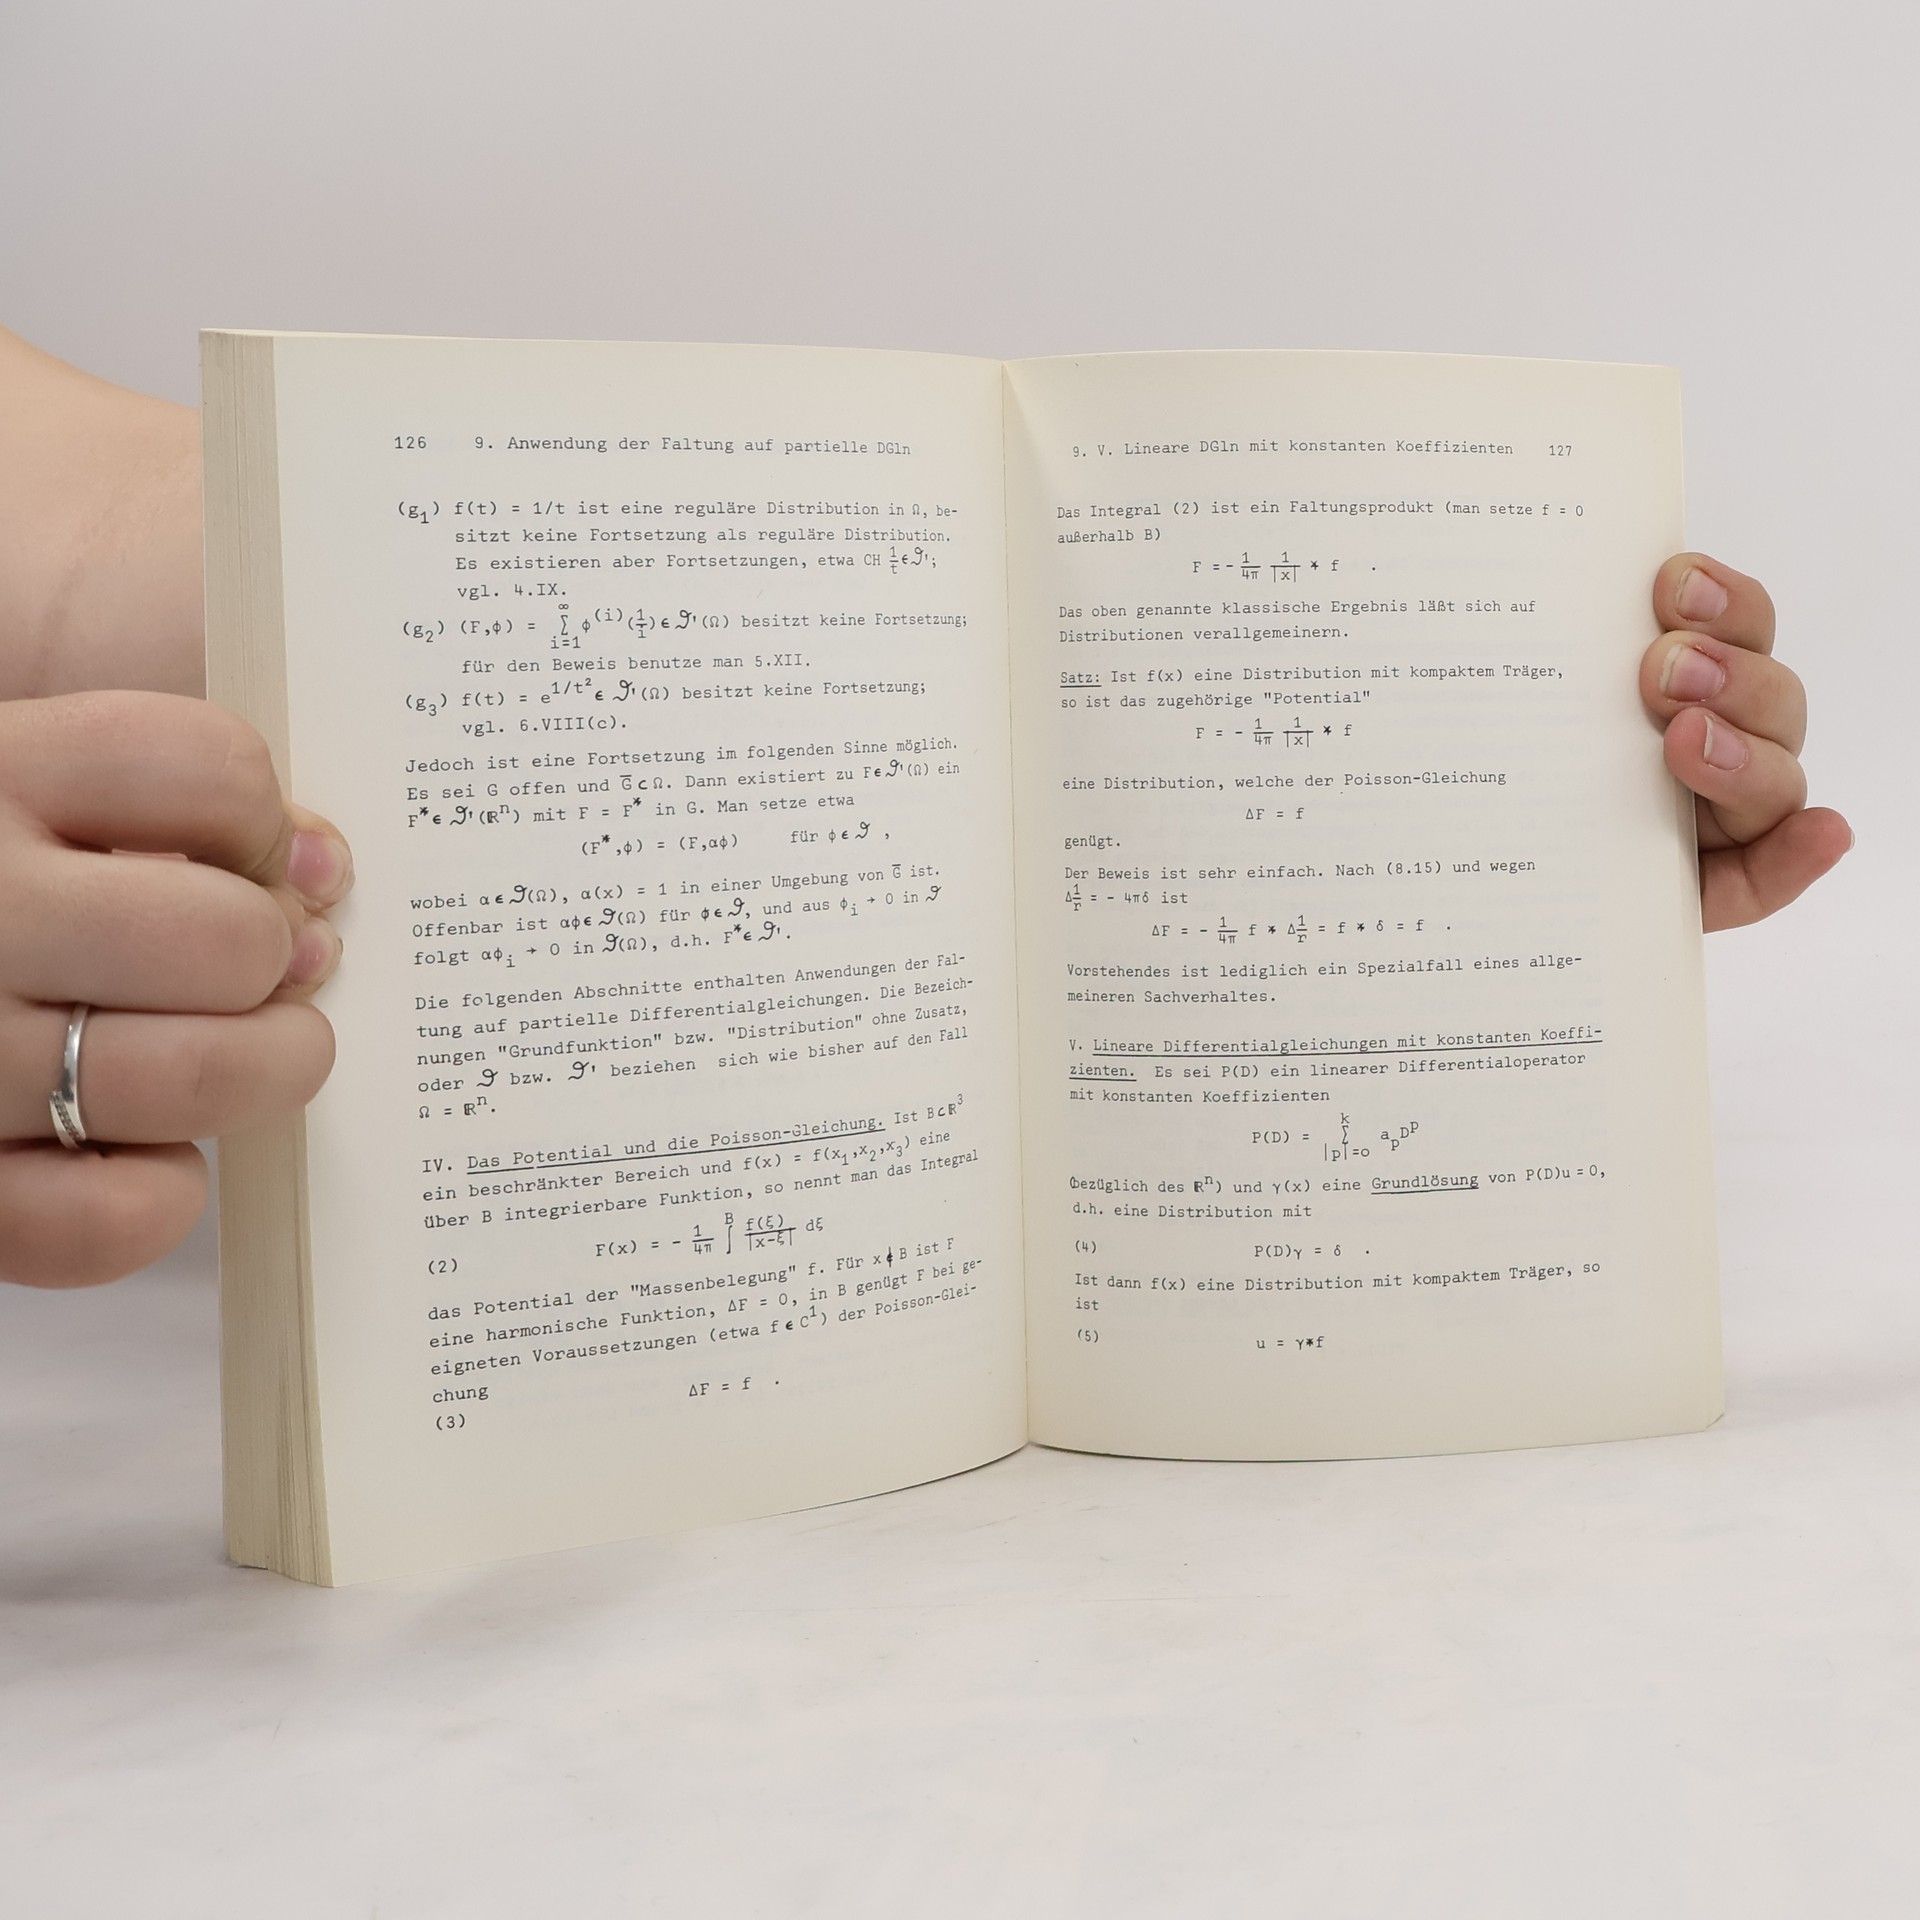 126 9. Anwendung der Faltung auf partielle DGln
(g₁) f(t) = 1/t ist eine reguläre Distribution in Ω, be-
sitzt keine Fortsetzung als reguläre Distribution.
Es existieren aber Fortsetzungen, etwa CH 1/t ϵ 𝒟';
vgl. 4.IX.
(g₂) (F,φ) = ∑_{i=1}^{∞} φ^(i)(1/i) ϵ 𝒟'(Ω) besitzt keine Fortsetzung;
für den Beweis benutze man 5.XII.
(g₃) f(t) = e^{1/t²} ϵ 𝒟'(Ω) besitzt keine Fortsetzung;
vgl. 6.VIII(c).
Jedoch ist eine Fortsetzung im folgenden Sinne möglich.
Es sei G offen und G̅ ⊂ Ω. Dann existiert zu F ϵ 𝒟'(Ω) ein
F* ϵ 𝒟'(ℝⁿ) mit F = F* in G. Man setze etwa
(F*,φ) = (F,αφ) für φ ϵ 𝒟 ,
wobei α ϵ 𝒟(Ω), α(x) = 1 in einer Umgebung von G̅ ist.
Offenbar ist αφ ϵ 𝒟(Ω) für φ ϵ 𝒟, und aus φᵢ → 0 in 𝒟
folgt αφᵢ → 0 in 𝒟(Ω), d.h. F* ϵ 𝒟'.
Die folgenden Abschnitte enthalten Anwendungen der Fal-
tung auf partielle Differentialgleichungen. Die Bezeich-
nungen "Grundfunktion" bzw. "Distribution" ohne Zusatz,
oder 𝒟 bzw. 𝒟' beziehen sich wie bisher auf den Fall
Ω = ℝⁿ.
IV. Das Potential und die Poisson-Gleichung. Ist B⊂ℝ³
ein beschränkter Bereich und f(x) = f(x₁,x₂,x₃) eine
über B integrierbare Funktion, so nennt man das Integral
(2) F(x) = - 1/4π ∫^B f(ξ)/|x-ξ| dξ
das Potential der "Massenbelegung" f. Für x ∉ B ist F
eine harmonische Funktion, ΔF = 0, in B genügt F bei ge-
eigneten Voraussetzungen (etwa f ϵ C¹) der Poisson-Glei-
chung
(3) ΔF = f .
9. V. Lineare DGln mit konstanten Koeffizienten 127
Das Integral (2) ist ein Faltungsprodukt (man setze f = 0
außerhalb B)
F = - 1/4π 1/|x| * f .
Das oben genannte klassische Ergebnis läßt sich auf
Distributionen verallgemeinern.
Satz: Ist f(x) eine Distribution mit kompaktem Träger,
so ist das zugehörige "Potential"
F = - 1/4π 1/|x| * f
eine Distribution, welche der Poisson-Gleichung
ΔF = f
genügt.
Der Beweis ist sehr einfach. Nach (8.15) und wegen
Δ1/r = - 4πδ ist
ΔF = - 1/4π f * Δ1/r = f * δ = f .
Vorstehendes ist lediglich ein Spezialfall eines allge-
meineren Sachverhaltes.
V. Lineare Differentialgleichungen mit konstanten Koeffi-
zienten. Es sei P(D) ein linearer Differentialoperator
mit konstanten Koeffizienten
P(D) = ∑_{|p|=0}^{k} aₚDᵖ
(bezüglich des ℝⁿ) und γ(x) eine Grundlösung von P(D)u = 0,
d.h. eine Distribution mit
(4) P(D)γ = δ .
Ist dann f(x) eine Distribution mit kompaktem Träger, so
ist
(5) u = γ*f